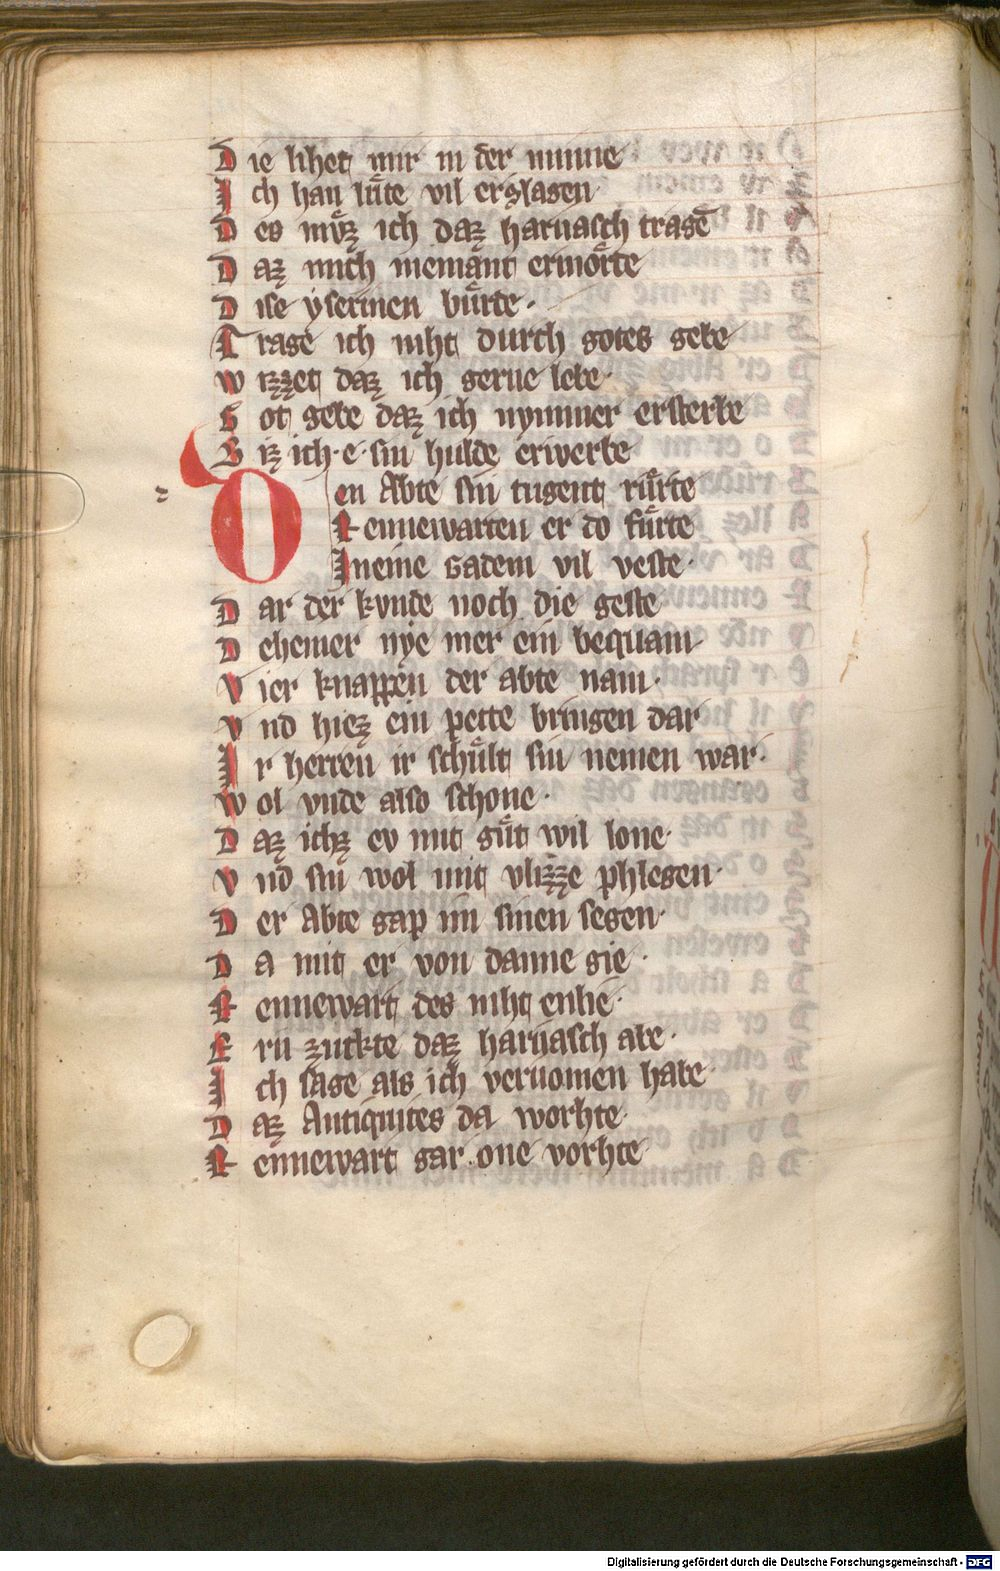 Die lihet mir in der minne
Ich han lu̍te vil erslagen
Des mv̊z ich daz harnasch tragē
Daz mich niemant ermo̍rte
Dise yserinen bu̍rde·
Trage ich niht durch gotes gebe
Wizzet daz ich gerne lebe·
Got gebe daz ich nymmer ersterbe
Biz ich·e·sin hulde erwerbe
Den Abte sin tugent ru̍rte
Rennewarten er do fu̍rte
Ineine Gadem vil veste·
Dar der kvnde noch die geste
Dehemer nye mer ein bequam
Vier knappen der abte nam·
Vnd hiez ein pette bringen dar
Ir herren ir schu̍lt sin nemen war·
Wol vnde also schone·
Daz ichz ev mit gu̍t wil lone·
Vnd sin wol mit vlizze phlegen·
Der Abte gap im sinen segen·
Da mit er von danne gie·
Rennewart des niht enlie·
Ern zuckte daz harnasch abe·
Ich sage als ich vernomen habe·
Daz Antiquites da worhte·
Rennewart gar one vorhte
Digitalisierung gefördert durch die Deutsche Forschungsgemeinschaft - DFG